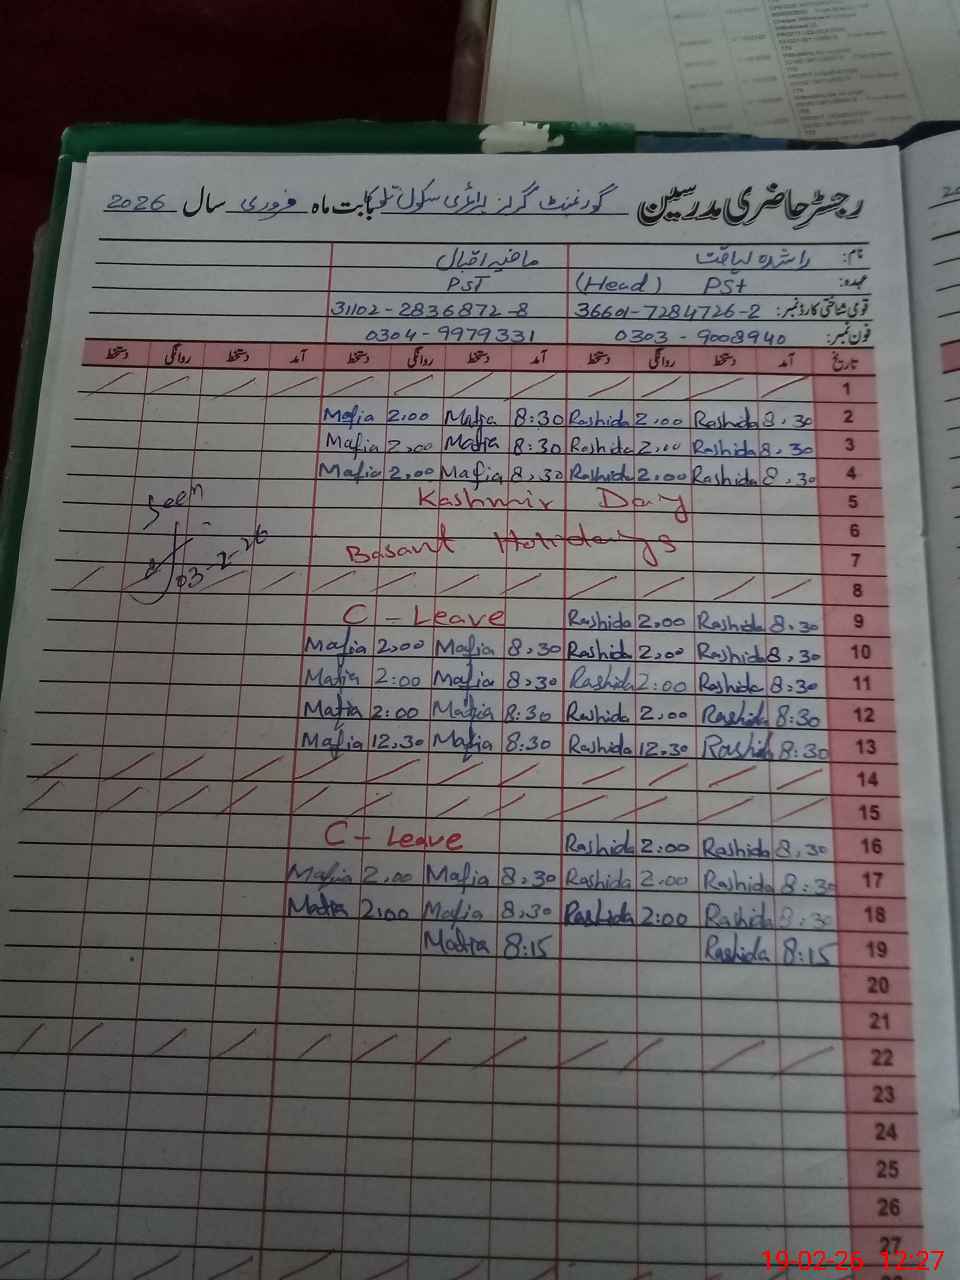 رجسٹر حاضری مدرسین گورنمنٹ گرلز پرائمری سکول بابت ماہ فروری سال 2026
نام: راشدہ لیاقت مافیہ اقبال
عہدہ: PST (Head) PST
قومی شناختی کارڈ نمبر: 36601-7284726-2 31102-2836872-8
فون نمبر: 0303-9008940 0304-9979331
تاریخ آمد دستخط روانگی دستخط آمد دستخط روانگی دستخط آمد دستخط روانگی دستخط
1
Mafia 2.00 Mafia 8:30 Rashida 2.00 Rashida 8.30 2
Mafia 2.00 Mafia 8:30 Rashida 2.00 Rashida 8.30 3
Mafia 2.00 Mafia 8.30 Rashida 2.00 Rashida 8.30 4
Seen
Kashmir Day 5
6
Basant Holidays 7
03-2-26
8
C-Leave Rashida 2.00 Rashida 8.30 9
Mafia 2.00 Mafia 8.30 Rashida 2.00 Rashida 8.30 10
Mafia 2:00 Mafia 8.30 Rashida 2:00 Rashida 8:30 11
Mafia 2:00 Mafia 8:30 Rashida 2.00 Rashida 8:30 12
Mafia 12.30 Mafia 8:30 Rashida 12.30 Rashida 8:30 13
14
15
C-Leave Rashida 2:00 Rashida 8.30 16
Mafia 2.00 Mafia 8.30 Rashida 2.00 Rashida 8:30 17
Mafia 2:00 Mafia 8.30 Rashida 2:00 Rashida 8:30 18
Mafia 8:15 Rashida 8:15 19
20
21
22
23
24
25
26
27
19-02-26 12:27